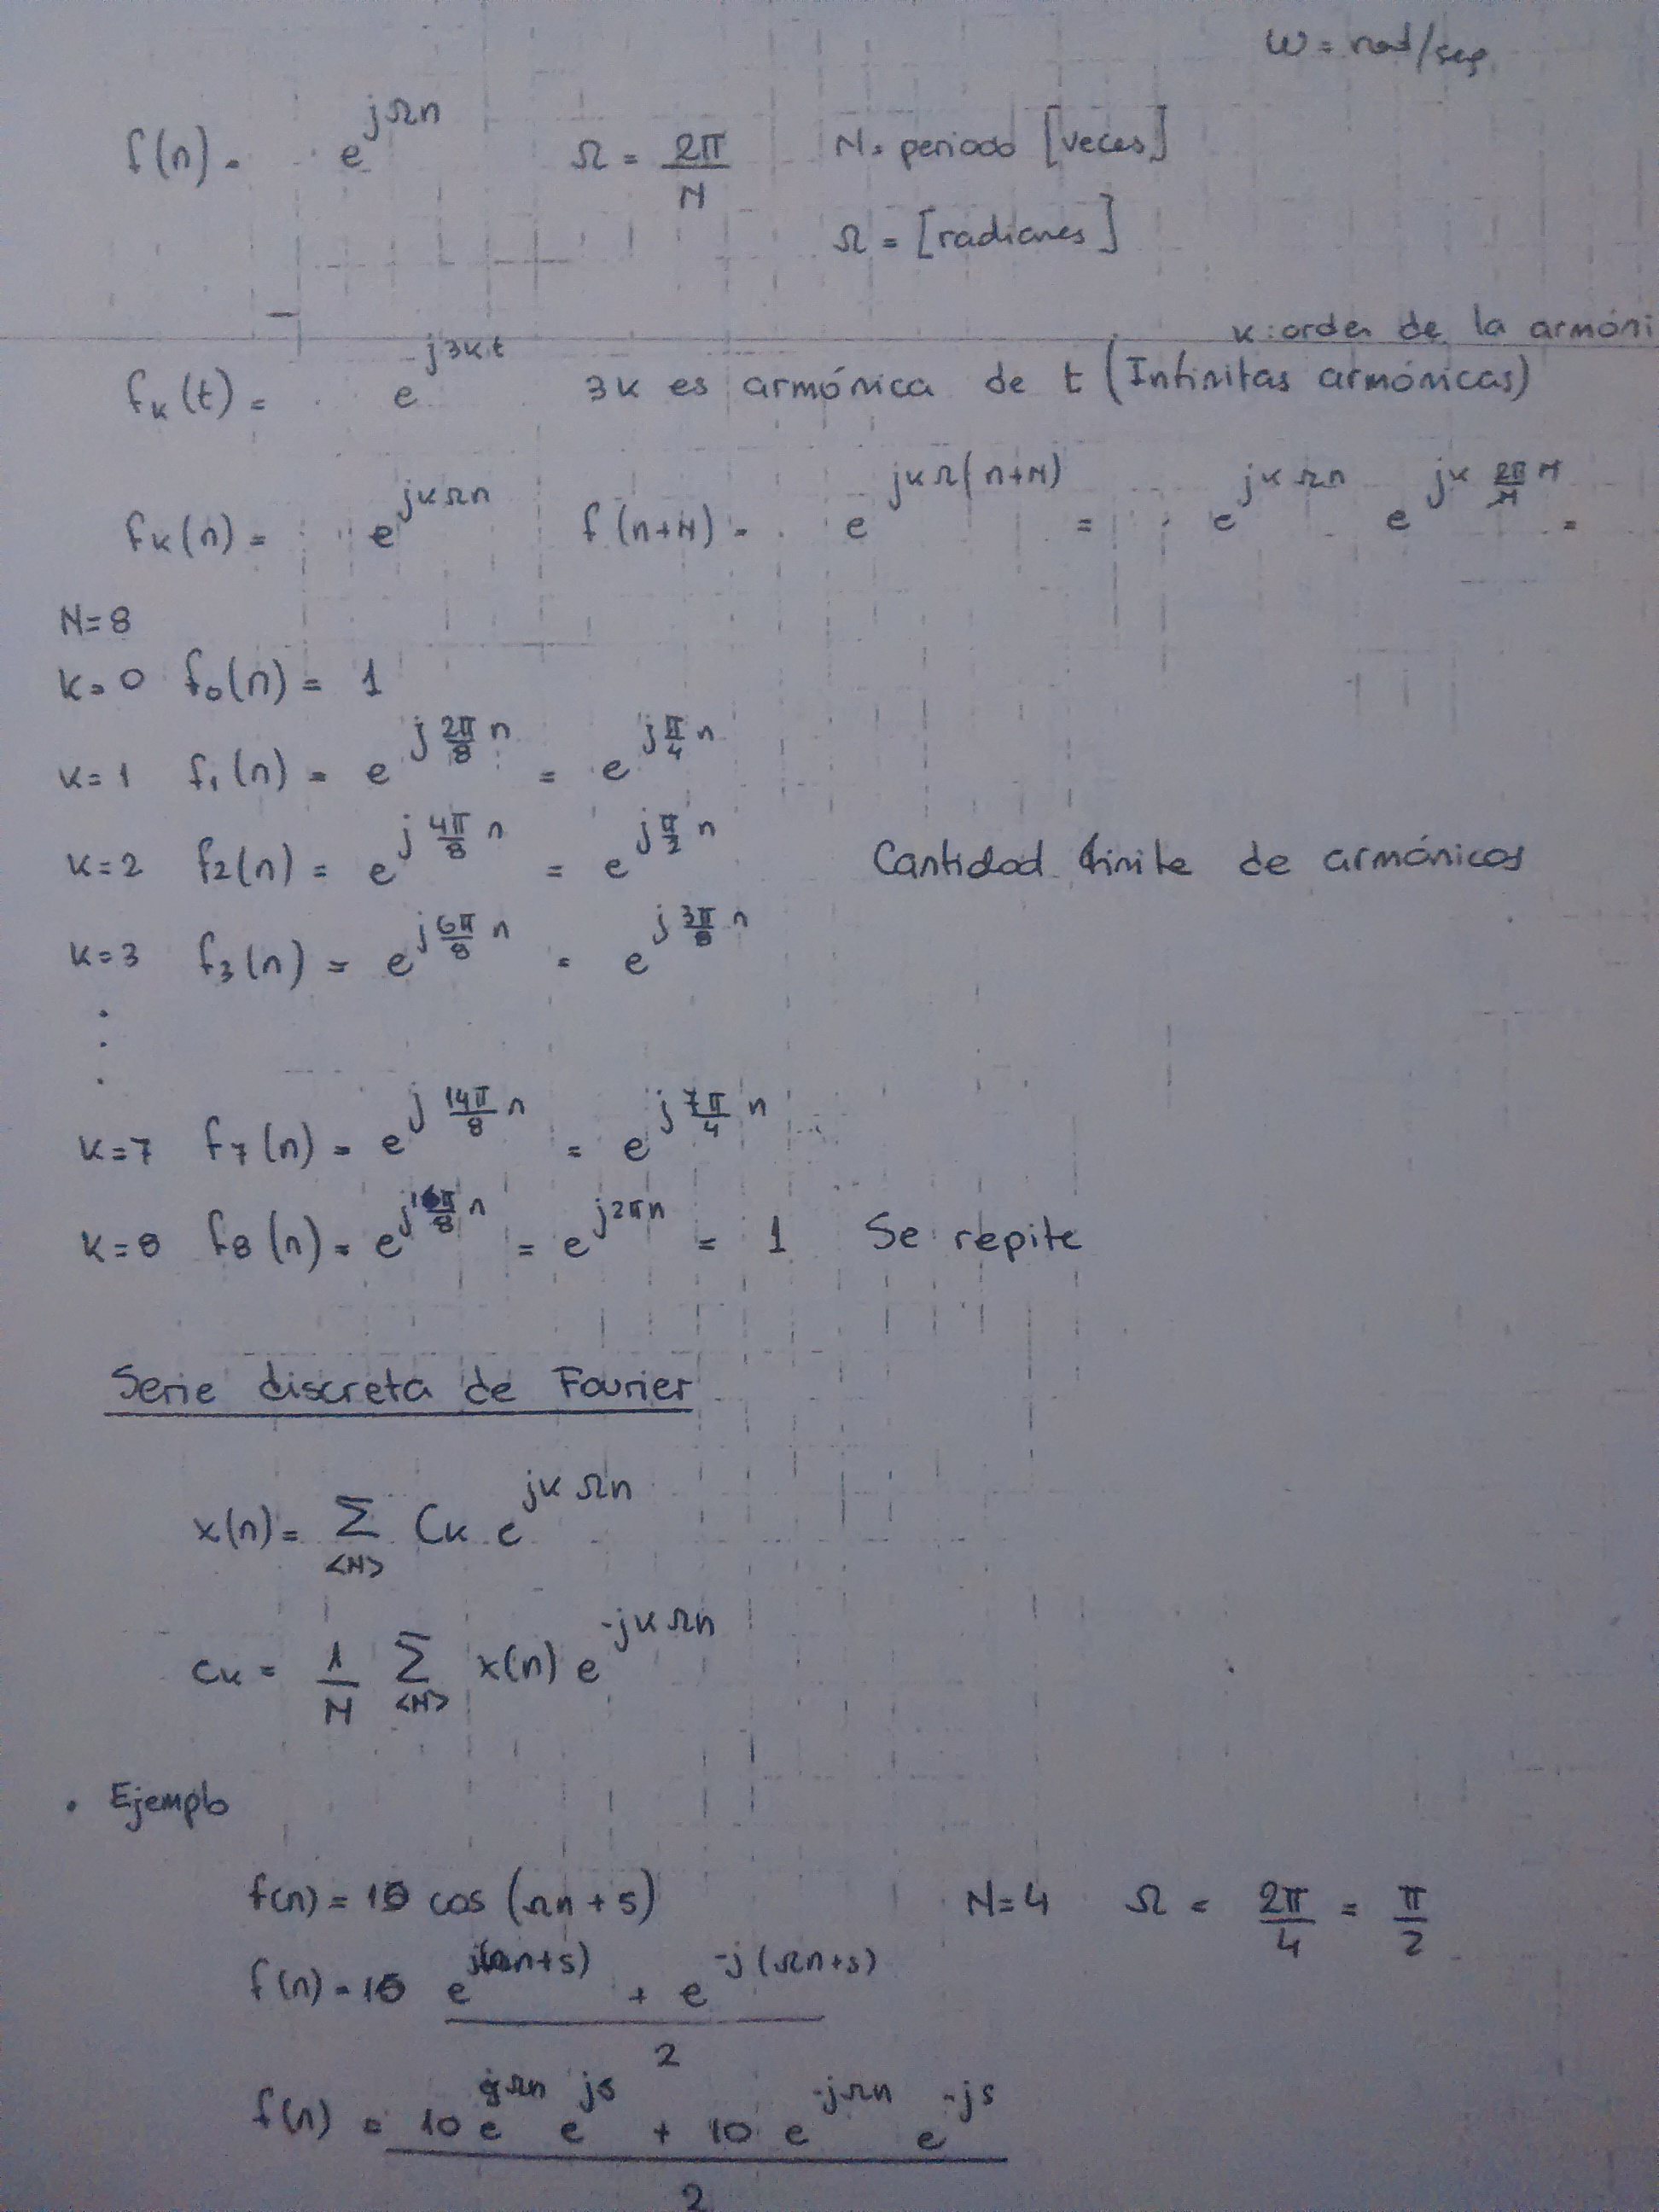 ω = rad/seg
f(n) = e^{jΩn} Ω = \frac{2π}{N} N = periodo [veces]
Ω = [radianes]
k: orden de la armóni
f_k(t) = e^{j3kt} 3k es armónica de t (Infinitas armónicas)
f_k(n) = e^{jkΩn} f(n+N) = e^{jkΩ(n+N)} = e^{jkΩn} e^{jk\frac{2π}{N}N} =
N=8
k=0 f_0(n) = 1
k=1 f_1(n) = e^{j\frac{2π}{8}n} = e^{j\frac{π}{4}n}
k=2 f_2(n) = e^{j\frac{4π}{8}n} = e^{j\frac{π}{2}n} Cantidad finite de armónicos
k=3 f_3(n) = e^{j\frac{6π}{8}n} = e^{j\frac{3π}{8}n}
.
.
.
k=7 f_7(n) = e^{j\frac{14π}{8}n} = e^{j\frac{7π}{4}n}
k=8 f_8(n) = e^{j\frac{16π}{8}n} = e^{j2πn} = 1 Se repite
Serie discreta de Fourier
x(n) = \sum_{<N>} C_k e^{jkΩn}
c_k = \frac{1}{N} \sum_{<N>} x(n) e^{-jkΩn}
• Ejemplo
f(n) = 10 cos (Ωn + 5) N=4 Ω = \frac{2π}{4} = \frac{π}{2}
f(n) = 10 \frac{e^{j(Ωn+5)} + e^{-j(Ωn+5)}}{2}
f(n) = \frac{10 e^{jΩn} e^{j5} + 10 e^{-jΩn} e^{-j5}}{2}